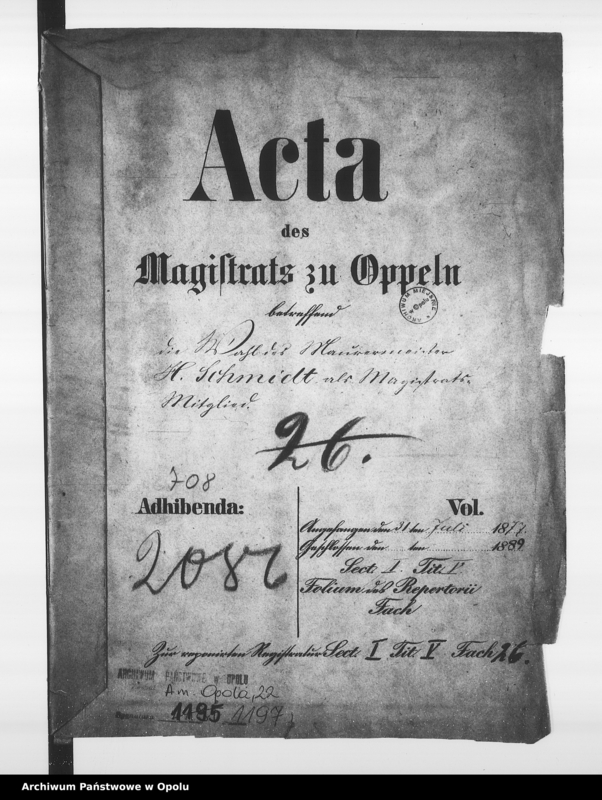 Acta
des
Magistrats zu Oppeln
betreffend
ARCHIWUM MIEJSKIE Opole
die Wahl des Maurermeister
H. Schmidt als Magistrats-
Mitglied.
26.
708
Adhibenda:
Vol.
2086
Angefangen den 31ten Juli 1877.
Geschlossen den ten 1889
Sect. I. Tit. V
Folium des Repertorii
Fach
Zur reponirten Registratur Sect. I Tit. V Fach 26.
ARCHIWUM PAŃSTWOWE w OPOLU
Am. Opola, 22
1195 1197
Archiwum Państwowe w Opolu